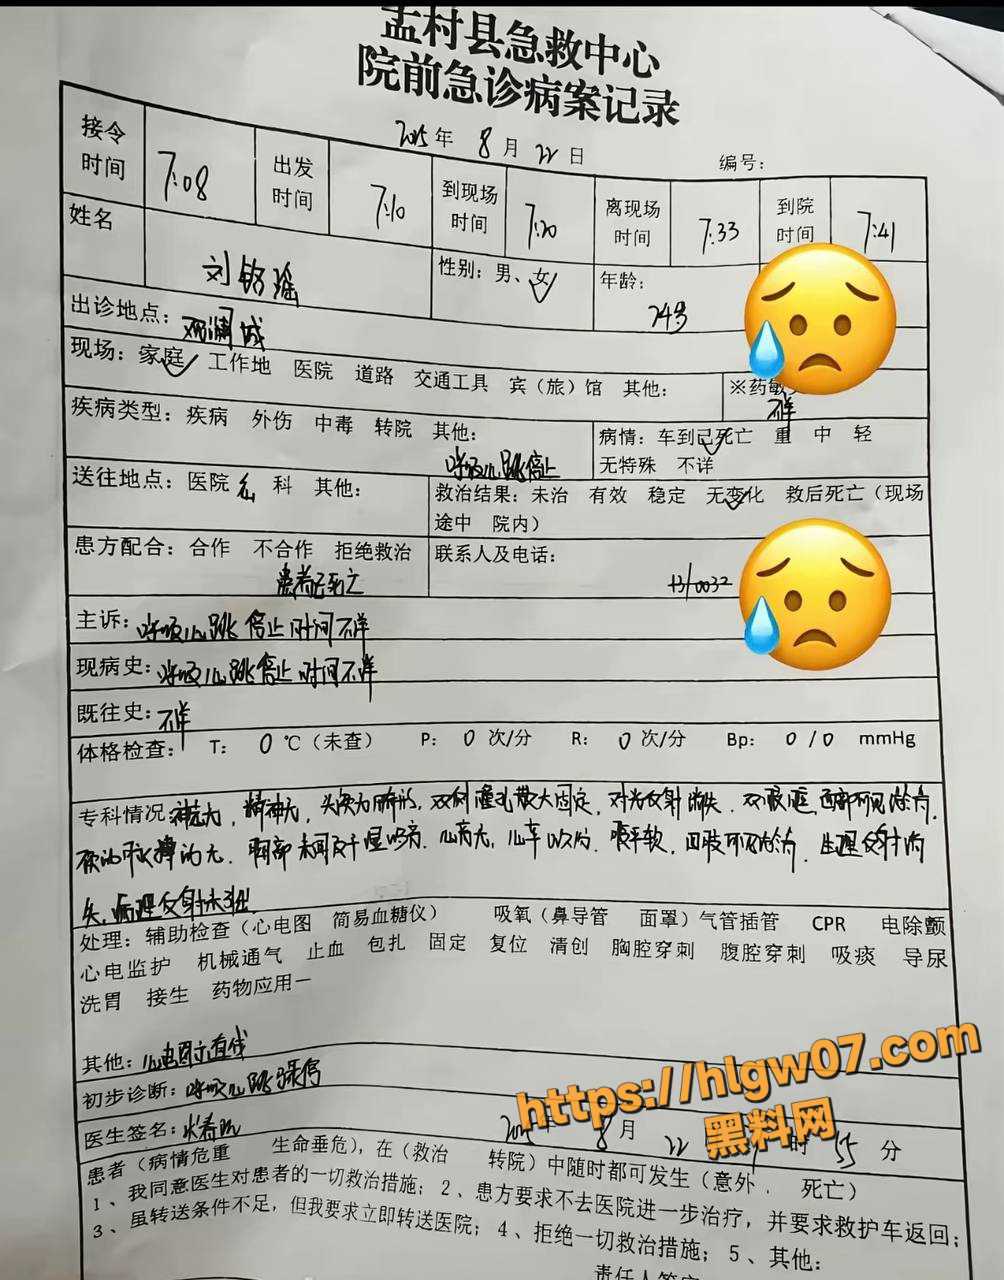 孟村县急救中心
院前急诊病案记录
2025年 8月 22日 编号：
接令时间 7:08 出发时间 7:10 到现场时间 7:20 离现场时间 7:33 到院时间 7:41
姓名 刘 瑶 性别：男、女✓ 年龄： 24岁
出诊地点： 观澜城
现场：家庭✓ 工作地 医院 道路 交通工具 宾（旅）馆 其他： ※药敏 不详
疾病类型：疾病 外伤 中毒 转院 其他： 呼吸心跳停止 病情：车到已死亡✓ 重 中 轻
无特殊 不详
送往地点：医院 急 科 其他： 救治结果：未治 有效 稳定 无变化✓ 救后死亡（现场
途中 院内）
患方配合：合作 不合作 拒绝救治 患者已死亡 联系人及电话：
主诉：呼吸心跳停止时间不详
现病史：呼吸心跳停止时间不详
既往史：不详
体格检查： T： 0 ℃（未查） P： 0 次/分 R： 0 次/分 Bp： 0 / 0 mmHg
专科情况：神志无，精神无，头颅无畸形，双侧瞳孔散大固定，对光反射消失，双眼眶
颈动脉搏动无，胸部未闻及干湿啰音，心音无，心率0次/分，腹平软，生理反射消
失，病理反射未引出
处理：辅助检查（心电图 简易血糖仪） 吸氧（鼻导管 面罩）气管插管 CPR 电除颤
心电监护 机械通气 止血 包扎 固定 复位 清创 胸腔穿刺 腹腔穿刺 吸痰 导尿
洗胃 接生 药物应用一
其他：心电图示直线
初步诊断：呼吸心跳骤停
https://hlgw07.com
黑料网
医生签名： 2025年 8月 22 时 55 分
患者（病情危重 生命垂危），在（救治 转院）中随时都可发生（意外． 死亡）
1、我同意医生对患者的一切救治措施；2、患方要求不去医院进一步治疗，并要求救护车返回；
3、虽转送条件不足，但我要求立即转送医院；4、拒绝一切救治措施；5、其他：
责任人签字